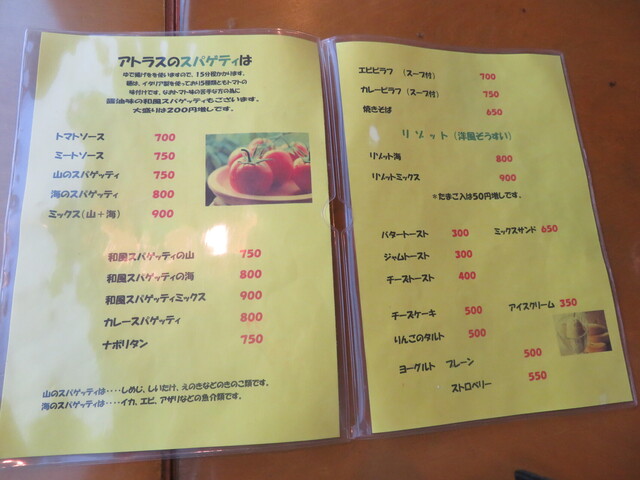 アトラスのスパゲティは
ゆで揚げをを使いますので、15分程かかります。
麺は、イタリア製を使っており5種類ともトマトの
味付けです。なおトマト味の苦手な方の為に
醤油味の和風スパゲッティもございます。
大盛りは200円増しです。
トマトソース 700
ミートソース 750
山のスパゲッティ 750
海のスパゲッティ 800
ミックス(山+海) 900
和風スパゲッティの山 750
和風スパゲッティの海 800
和風スパゲッティミックス 900
カレースパゲッティ 800
ナポリタン 750
山のスパゲッティは・・・・しめじ、しいたけ、えのきなどのきのこ類です。
海のスパゲッティは・・・・イカ、エビ、アサリなどの魚介類です。
エビピラフ (スープ付) 700
カレーピラフ (スープ付) 750
焼きそば 650
リゾット (洋風ぞうすい)
リゾット海 800
リゾットミックス 900
*たまご入は50円増しです。
バタートースト 300 ミックスサンド 650
ジャムトースト 300
チーストースト 400
チーズケーキ 500 アイスクリーム 350
りんごのタルト 500
ヨーグルト プレーン 500
ストロベリー 550